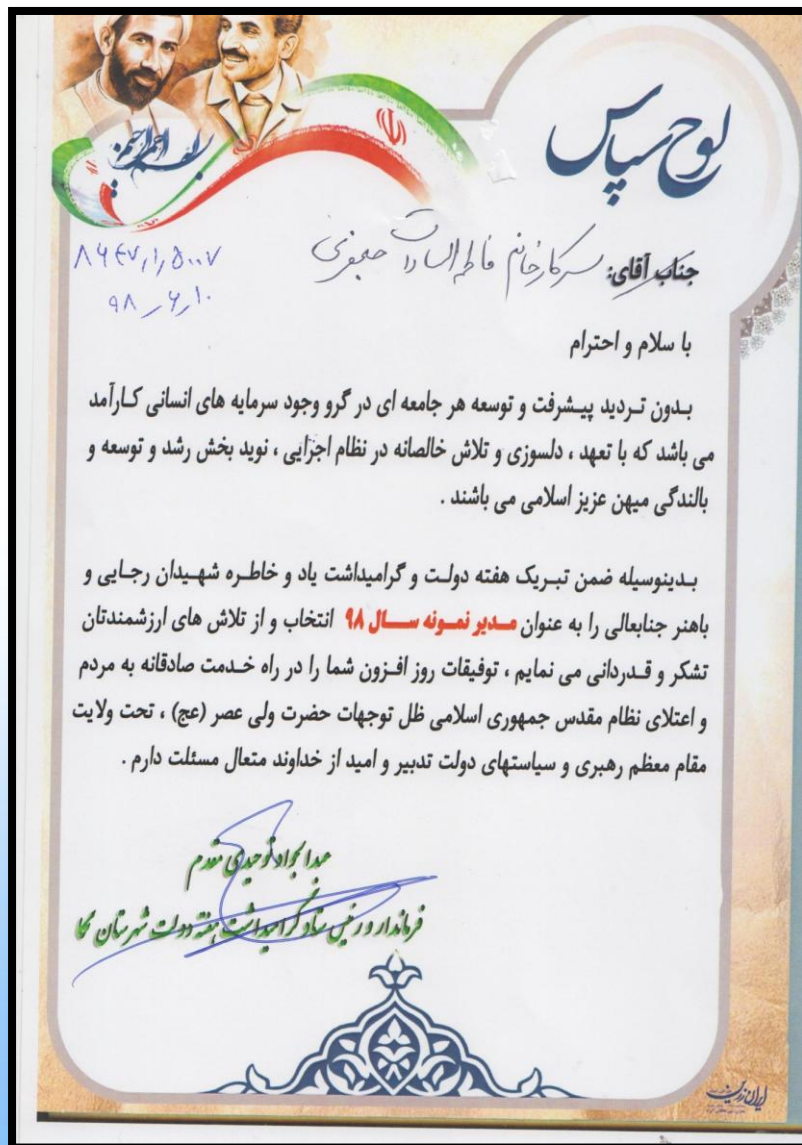 لوح سپاس
جناب آقای: سرکار خانم فاطمه السادات جعفری
۸۶۴۷/۱/۵۰۰۷
۹۸/۶/۱۰
با سلام و احترام
بدون تردید پیشرفت و توسعه هر جامعه ای در گرو وجود سرمایه های انسانی کارآمد
می باشد که با تعهد ، دلسوزی و تلاش خالصانه در نظام اجرایی ، نوید بخش رشد و توسعه و
بالندگی میهن عزیز اسلامی می باشند .
بدینوسیله ضمن تبریک هفته دولت و گرامیداشت یاد و خاطره شهیدان رجایی و
باهنر جنابعالی را به عنوان مدیر نمونه سال ۹۸ انتخاب و از تلاش های ارزشمندتان
تشکر و قدردانی می نمایم ، توفیقات روز افزون شما را در راه خدمت صادقانه به مردم
و اعتلای نظام مقدس جمهوری اسلامی ظل توجهات حضرت ولی عصر (عج) ، تحت ولایت
مقام معظم رهبری و سیاستهای دولت تدبیر و امید از خداوند متعال مسئلت دارم .
عبدالجواد توحیدی مقدم
فرماندار و رئیس ستاد گرامیداشت هفته دولت شهرستان نکا